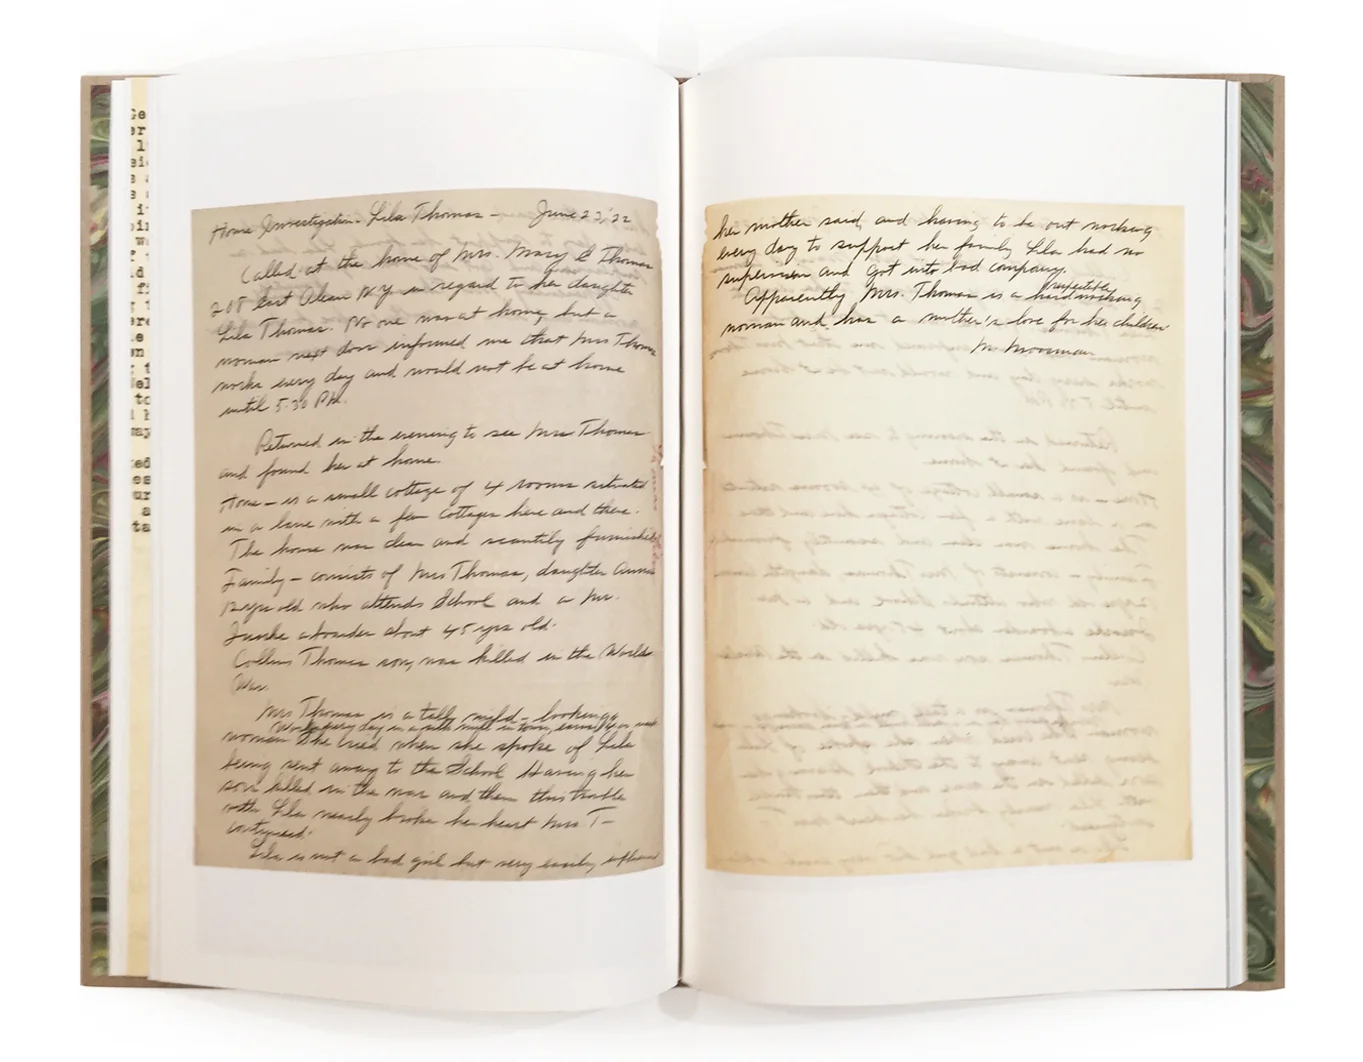 Home Investigation - Lila Thomas - June 22, '22
Called at the home of Mrs. Mary E Thomas
208 East Olean N.Y. in regard to her daughter
Lila Thomas. No one was at home, but a
woman next door informed me that Mrs Thomas
works every day and would not be at home
until 5:30 PM.
Returned in the evening to see Mrs Thomas
and found her at home.
Home - is a small cottage of 4 rooms situated
in a lane with a few cottages here and there.
The house was clean and scantily furnished
Family - consists of Mrs Thomas, daughter Anna
12 yrs old who attends School and a Mr.
a boarder about 45 yrs old.
Collins Thomas son, was killed in the World
War.
Mrs Thomas is a tall, mild - looking
Works every day in a mill in town, earns
woman She cried when she spoke of Lila
being sent away to the School Having her
son killed in the war and then this trouble
with Lila nearly broke her heart Mrs T -
Lila is not a bad girl but very easily influenced
her mother said, and having to be out working
every day to support her family Lila had no
supervision and got into bad company.
respectable
Apparently Mrs. Thomas is a hardworking
woman and has a mother's love for her children
M Moorman